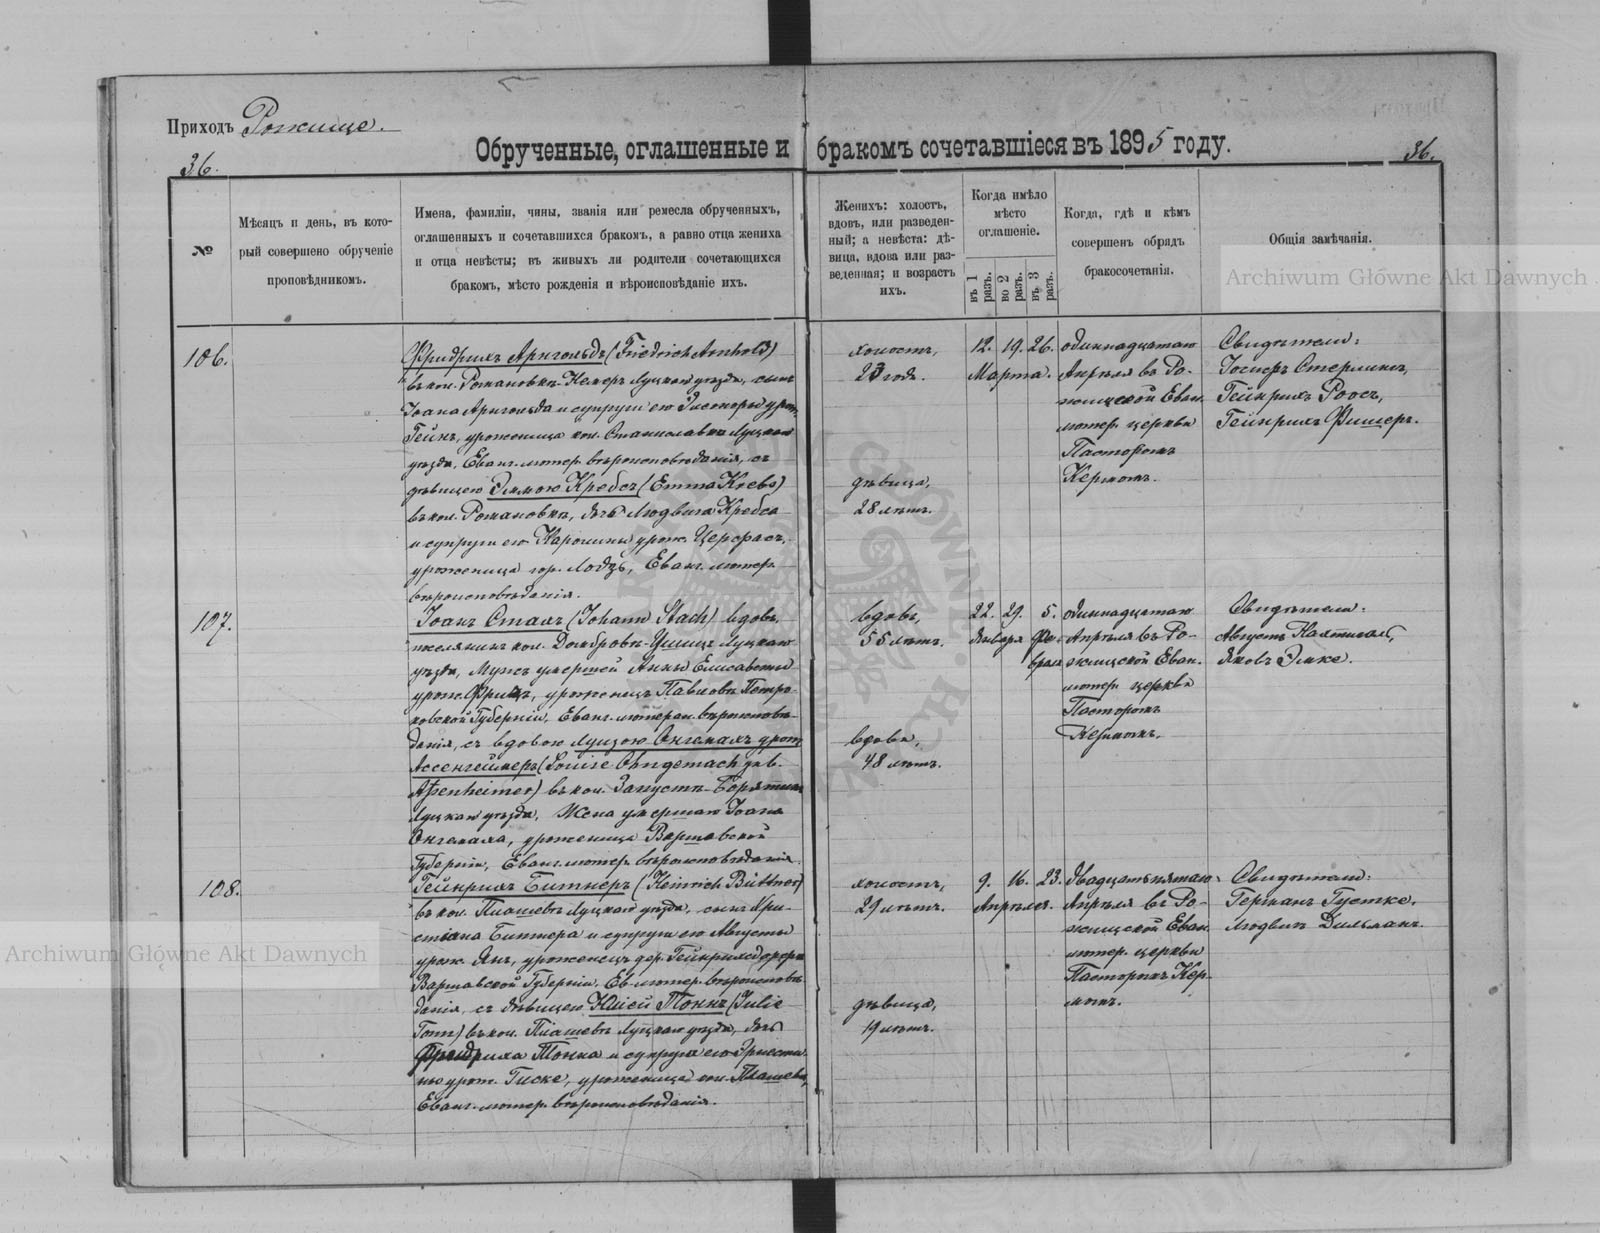 Приходъ Рожище.
Обрученные, оглашенные и бракомъ сочетавшіеся въ 1895 году.
36.
36.
№
Мѣсяцъ и день, въ кото-
рый совершено обрученіе
проповѣдникомъ.
Имена, фамиліи, чины, званія или ремесла обрученныхъ,
оглашенныхъ и сочетавшихся бракомъ, а равно отца жениха
и отца невѣсты; въ живыхъ ли родители сочетающихся
бракомъ, мѣсто рожденія и вѣроисповѣданіе ихъ.
Женихъ: холостъ,
вдовъ, или разведен-
ный; а невѣста: дѣ-
вица, вдова или раз-
веденная; и возрастъ
ихъ.
Когда имѣло
мѣсто
оглашеніе.
въ 1 разъ.
во 2 разъ.
въ 3 разъ.
Когда, гдѣ и кѣмъ
совершенъ обрядъ
бракосочетанія.
Общія замѣчанія.
Archiwum Główne Akt Dawnych
106.
Фридрихъ Арнгольдъ (Friedrich Arnhold)
въ кол. Романовкѣ-Кемеръ Луцкаго уѣзда, сынъ
Іоана Арнгольда и супруги его Элеоноры урож.
Гейнъ, уроженецъ кол. Станиславка Луцкаго
уѣзда, Еванг. лютер. вѣроисповѣданія, съ
дѣвицею Эммою Кребсъ (Emma Krebs)
въ кол. Романовкѣ, дочь Людвига Кребса
и супруги его Каролины урож. Церфасъ,
уроженица гор. Лодзь, Еванг. лютер.
вѣроисповѣданія.
холостъ,
23 года.
дѣвица,
28 лѣтъ.
12. 19. 26.
Марта.
одиннадцатаго
Апрѣля въ Ро-
жищской Еван.
лютер. церкви
Пасторомъ
Кермомъ.
Свидѣтели:
Іосифъ Стерлингъ,
Гейнрихъ Роосъ,
Гейнрихъ Фишеръ.
107.
Іоанъ Стахъ (Johann Stach) вдовъ,
поселянинъ кол. Домбровъ-Ушицъ Луцкаго
уѣзда, Мужъ умершей Анны Елисаветы
урож. Фрицъ, уроженецъ Павловъ Петро-
ковской Губерніи, Еванг. лютеран. вѣроисповѣ-
данія, съ вдовою Луизою Онгемахъ урож.
Ассенгеймеръ (Louise Ohngemach geb.
Assenheimer) въ кол. Запустъ-Борятинъ
Луцкаго уѣзда, Жена умершаго Іоана
Онгемаха, уроженица Варшавской
Губерніи, Еванг. лютер. вѣроисповѣданія.
вдовъ,
55 лѣтъ.
вдова,
48 лѣтъ.
22. 29. 5.
Января Фе-
враля
одиннадцатаго
Апрѣля въ Ро-
жищской Еван.
лютер. церкви
Пасторомъ
Кермомъ.
Свидѣтели:
Августъ Нахтигаль,
Яковъ Эмке.
108.
Гейнрихъ Битнеръ (Heinrich Büttner)
въ кол. Пляшевъ Луцкаго уѣзда, сынъ Хри-
стіана Битнера и супруги его Августы
урож. Янъ, уроженецъ дер. Гейнрихсдорфъ
Варшавской Губерніи, Ев. лютер. вѣроисповѣ-
данія, съ дѣвицею Юліей Тоннъ (Julie
Tonn) въ кол. Пляшевъ Луцкаго уѣзда, дочь
Фридриха Тонна и супруги его Эрнести-
ны урож. Гиске, уроженица кол. Пляшевъ,
Еванг. лютер. вѣроисповѣданія.
холостъ,
29 лѣтъ.
дѣвица,
19 лѣтъ.
9. 16. 23.
Апрѣля.
двадцатьпятаго
Апрѣля въ Ро-
жищской Еван.
лютер. церкви
Пасторомъ Кер-
момъ.
Свидѣтели:
Германъ Густке,
Людвигъ Дильманъ.
Archiwum Główne Akt Dawnych